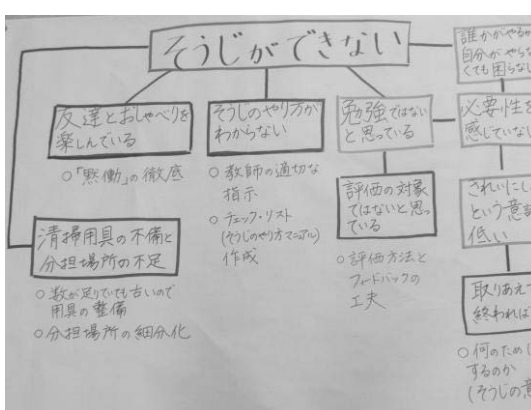 そうじができない
友達とおしゃべりを
楽しんでいる
○「黙働」の徹底
清掃用具の不備と
分担場所の不足
○数が足りていても古いので
用具の整備
○分担場所の細分化
そうじのやり方が
わからない
○教師の適切な
指示
○チェック・リスト
(そうじのやり方マニュアル)
作成
勉強ではない
と思っている
評価の対象
ではないと思っ
ている
○評価方法と
フィードバックの
工夫
誰かがやるか
自分がやらな
くても困らない
必要性を
感じていな
きれいにし
という意
低い
取りあえ
終われば
○何のため
するのか
(そうじの意